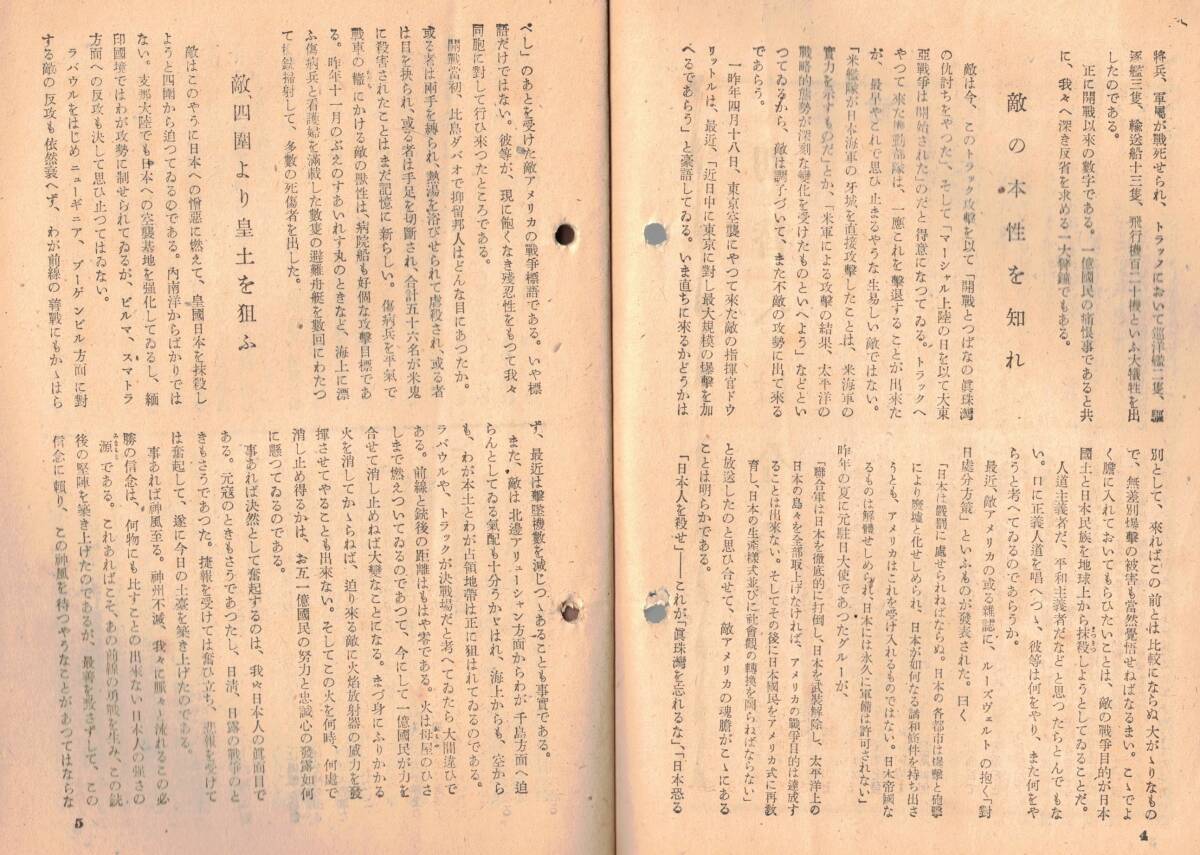 將兵、軍屬が戰死せられ、トラックにおいて巡洋艦二隻、驅
逐艦三隻、輸送船十三隻、飛行機百二十機といふ大犠牲を出
したのである。
正に開戰以來の數字である。一億國民の痛恨事であると共
に、我々へ深き反省を求める一大警鐘でもある。
敵の本性を知れ
敵は今、このトラック攻撃を以て「開戰とつぱなの眞珠灣
の仇討ちをやつた」、そして「マーシャル上陸の日を以て大東
亞戰爭は開始された」のだと得意になつてゐる。トラックへ
やつて來た機動部隊は、一應これを撃退することが出來た
が、最早やこれで思ひ止まるやうな生易しい敵ではない。
「米艦隊が日本海軍の牙城を直接攻撃したことは、米海軍の
實力を示すものだ」とか、「米軍による攻撃の結果、太平洋の
戰略的態勢が深刻な變化を受けたものといへよう」などとい
つてゐるから、敵は調子づいて、また不敵の攻勢に出て來る
であらう。
一昨年四月十八日、東京空襲にやつて來た敵の指揮官ドウ
リットルは、最近、「近日中に東京に對し最大規模の爆撃を加
へるであらう」と豪語してゐる。いま直ちに來るかどうかは
別として、來ればこの前とは比較にならぬ大がゝりなもの
で、無差別爆撃の被害も當然覺悟せねばなるまい。こゝでよ
く膽に入れておいてもらひたいことは、敵の戰爭目的が日本
國土と日本民族を地球上から抹殺しようとしてゐることだ。
人道主義者だ、平和主義者だなどと思つたらとんでもな
い。口に正義人道を唱へつゝ、彼等は何をやり、また何をや
らうと考へてゐるのであらうか。
最近、敵アメリカの或る雜誌に、ルーズヴェルトの抱く「對
日處分方策」といふものが發表された。曰く
「日本は嚴罰に處せられねばならぬ。日本の各都市は爆撃と砲撃
により廢墟と化せしめられ、日本が如何なる講和條件を持ち出さ
うとも、アメリカはこれを受け入れるものではない。日本帝國な
るものは解體せしめられ、日本には永久に軍備は許可されない」
昨年の夏に元駐日大使であつたグルーが、
「聯合軍は日本を徹底的に打倒し、日本を武裝解除し、太平洋上の
日本の島々を全部取上げなければ、アメリカの戰爭目的は達成す
ることは出來ない。そしてその後に日本國民をアメリカ式に再教
育し、日本の生產樣式並びに社會觀の轉換を圖らねばならない」
と放送したのと思ひ合せて、敵アメリカの魂膽がこゝにある
ことは明らかである。
「日本人を殺せ」――これが「眞珠灣を忘れるな」、「日本恐る
4
べし」のあとを受けた敵アメリカの戰爭標語である。いや標
語だけではない。彼等が、現に飽くなき殘忍性をもつて我々
同胞に對して行ひ來つたところである。
開戰當初、比島ダバオで抑留邦人はどんな目にあつたか。
或る者は兩手を縛られ、熱湯を浴びせられて虐殺され、或る者
は目を抉られ、或る者は手足を切斷され、合計五十六名が米鬼
に殺害されたことはまだ記憶に新らしい。傷病兵を平氣で
戰車の轍にかける敵の獸性は、病院船も好個な攻撃目標であ
る。昨年十一月のぶえのすあいれす丸のときなど、海上に漂
ふ傷病兵と看護婦を滿載した數隻の避難舟艇を數回にわたつ
て機銃掃射して、多數の死傷者を出した。
敵、四圍より皇土を狙ふ
敵はこのやうに日本への憎惡に燃えて、皇國日本を抹殺し
ようと四圍から迫つてゐるのである。內南洋からばかりでは
ない。支那大陸でも日本への空襲基地を强化してゐるし、緬
印國境ではわが攻勢に制せられてゐるが、ビルマ、スマトラ
方面への反攻も決して思ひ止つてはゐない。
ラバウルをはじめニューギニア、ブーゲンビル方面に對
する敵の反攻も依然衰へず、わが前線の奮戰にもかゝはら
ず、最近は擊墜機數を減じつゝあることも事實である。
また、敵は北邊アリューシャン方面からわが千島方面へ迫
らんとしてゐる氣配も十分うかゞはれ、海上からも、空から
も、わが本土とわが占領地帶は正に狙はれてゐるのである。
ラバウルや、トラックが決戰場だと考へてゐたら大間違ひで
ある。前線と銃後の距離はもはや零である。火は母屋のひさ
しまで燃えついてゐるのであつて、今にして一億國民が力を
合せて消し止めねば大變なことになる。まづ身にふりかかる
火を消してかゝらねば、迫り來る敵に火焰放射器の威力を發
揮させてやることも出來ない。そしてこの火を何時、何處で
消し止め得るかは、お互一億國民の努力と忠誠心の發露如何
に懸つてゐるのである。
事あれば決然として奮起するのは、我々日本人の眞面目で
ある。元寇のときもさうであつたし、日淸、日露の戰爭のと
きもさうであつた。捷報を受けては奮ひ立ち、悲報を受けて
は奮起して、遂に今日の土臺を築き上げたのである。
事あれば神風至る。神州不滅、我々に脈々と流れるこの必
勝の信念は、何物にも比すことの出來ない日本人の强さの
源である。これあればこそ、あの前線の勇戰を生み、この銃
後の堅陣を築き上げたのであるが、最善を致さずして、この
信念に賴り、この神風を待つやうなことがあつてはならな
5